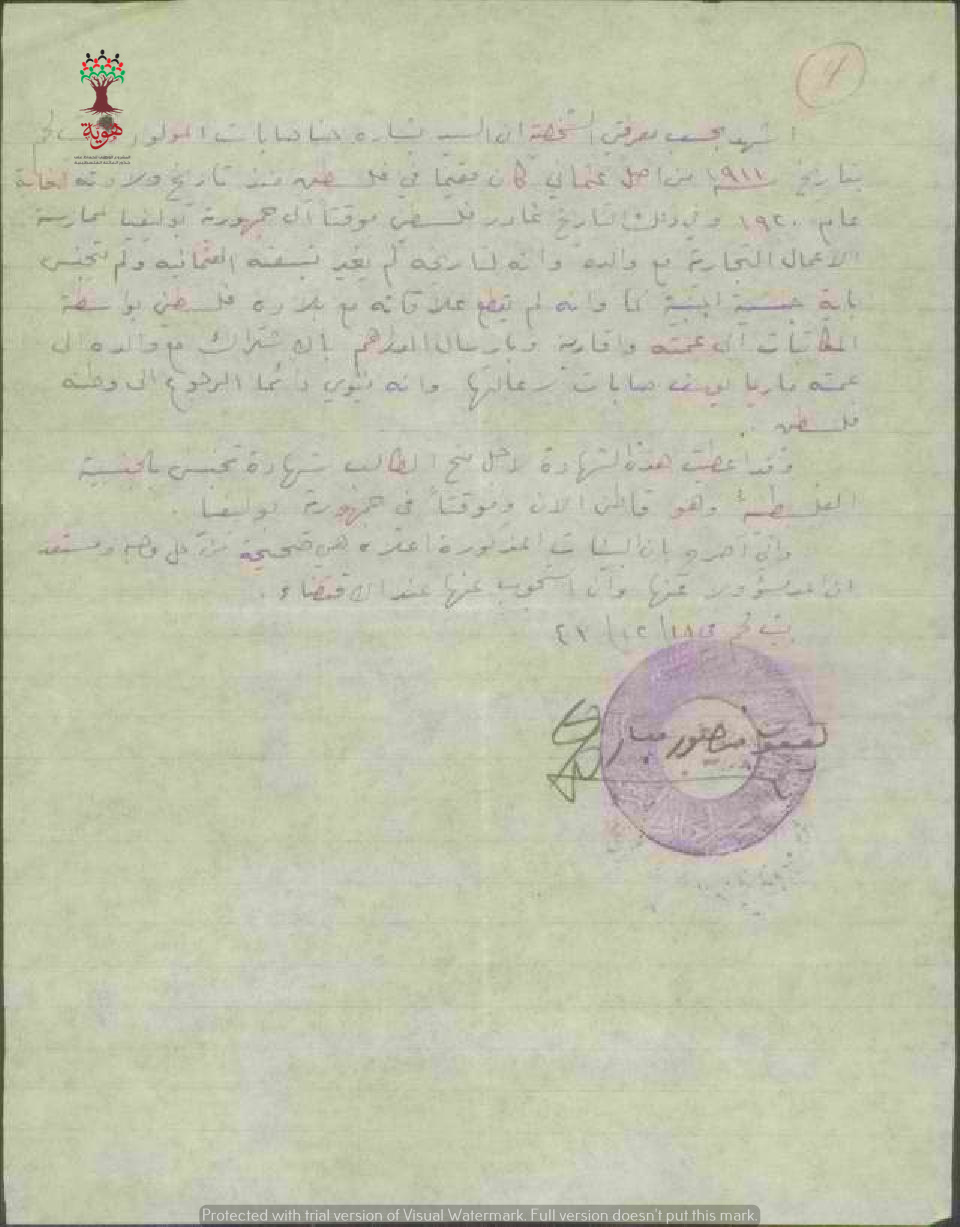 ٩
هوية
اشهد بحسب معرفتي الشخصية ان السيد بشاره حنا صابات المولود لحم
بتاريخ ١٩١١ من اصل عثماني كان مقيما في فلسطين منذ تاريخ ولادته لغاية
عام ١٩٢٠ وفي ذلك التاريخ غادر فلسطين موقتا الى جمهورية بوليفيا لممارسة
الاعمال التجارية مع والده وانه لتاريخه لم يغير تبعته العثمانيه ولم يتجنس
باية جنسية اجنبية كما وانه لم يقطع علاقاته مع بلاده فلسطين بواسطة
المكاتبات الى عمته واقاربه وبارسال الدراهم بالاشتراك مع والده الى
عمته ماريا يوسف صابات وانه ينوي دائما الرجوع الى وطنه
فلسطين .
وقد اعطيت هذه الشهادة لاجل منح الطالب شهادة تجنس بالجنسية
الفلسطينية وهو قاطن الان وموقتاً في جمهورية بوليفيا .
واني اصرح بان البيانات المذكورة اعلاه هي صحيحة ومستعد
ان اكون مسؤولا عنها وان استجوب عنها عند الاقتضاء .
بيت لحم في ١٨/١٢/
Protected with trial version of Visual Watermark. Full version doesn't put this mark.